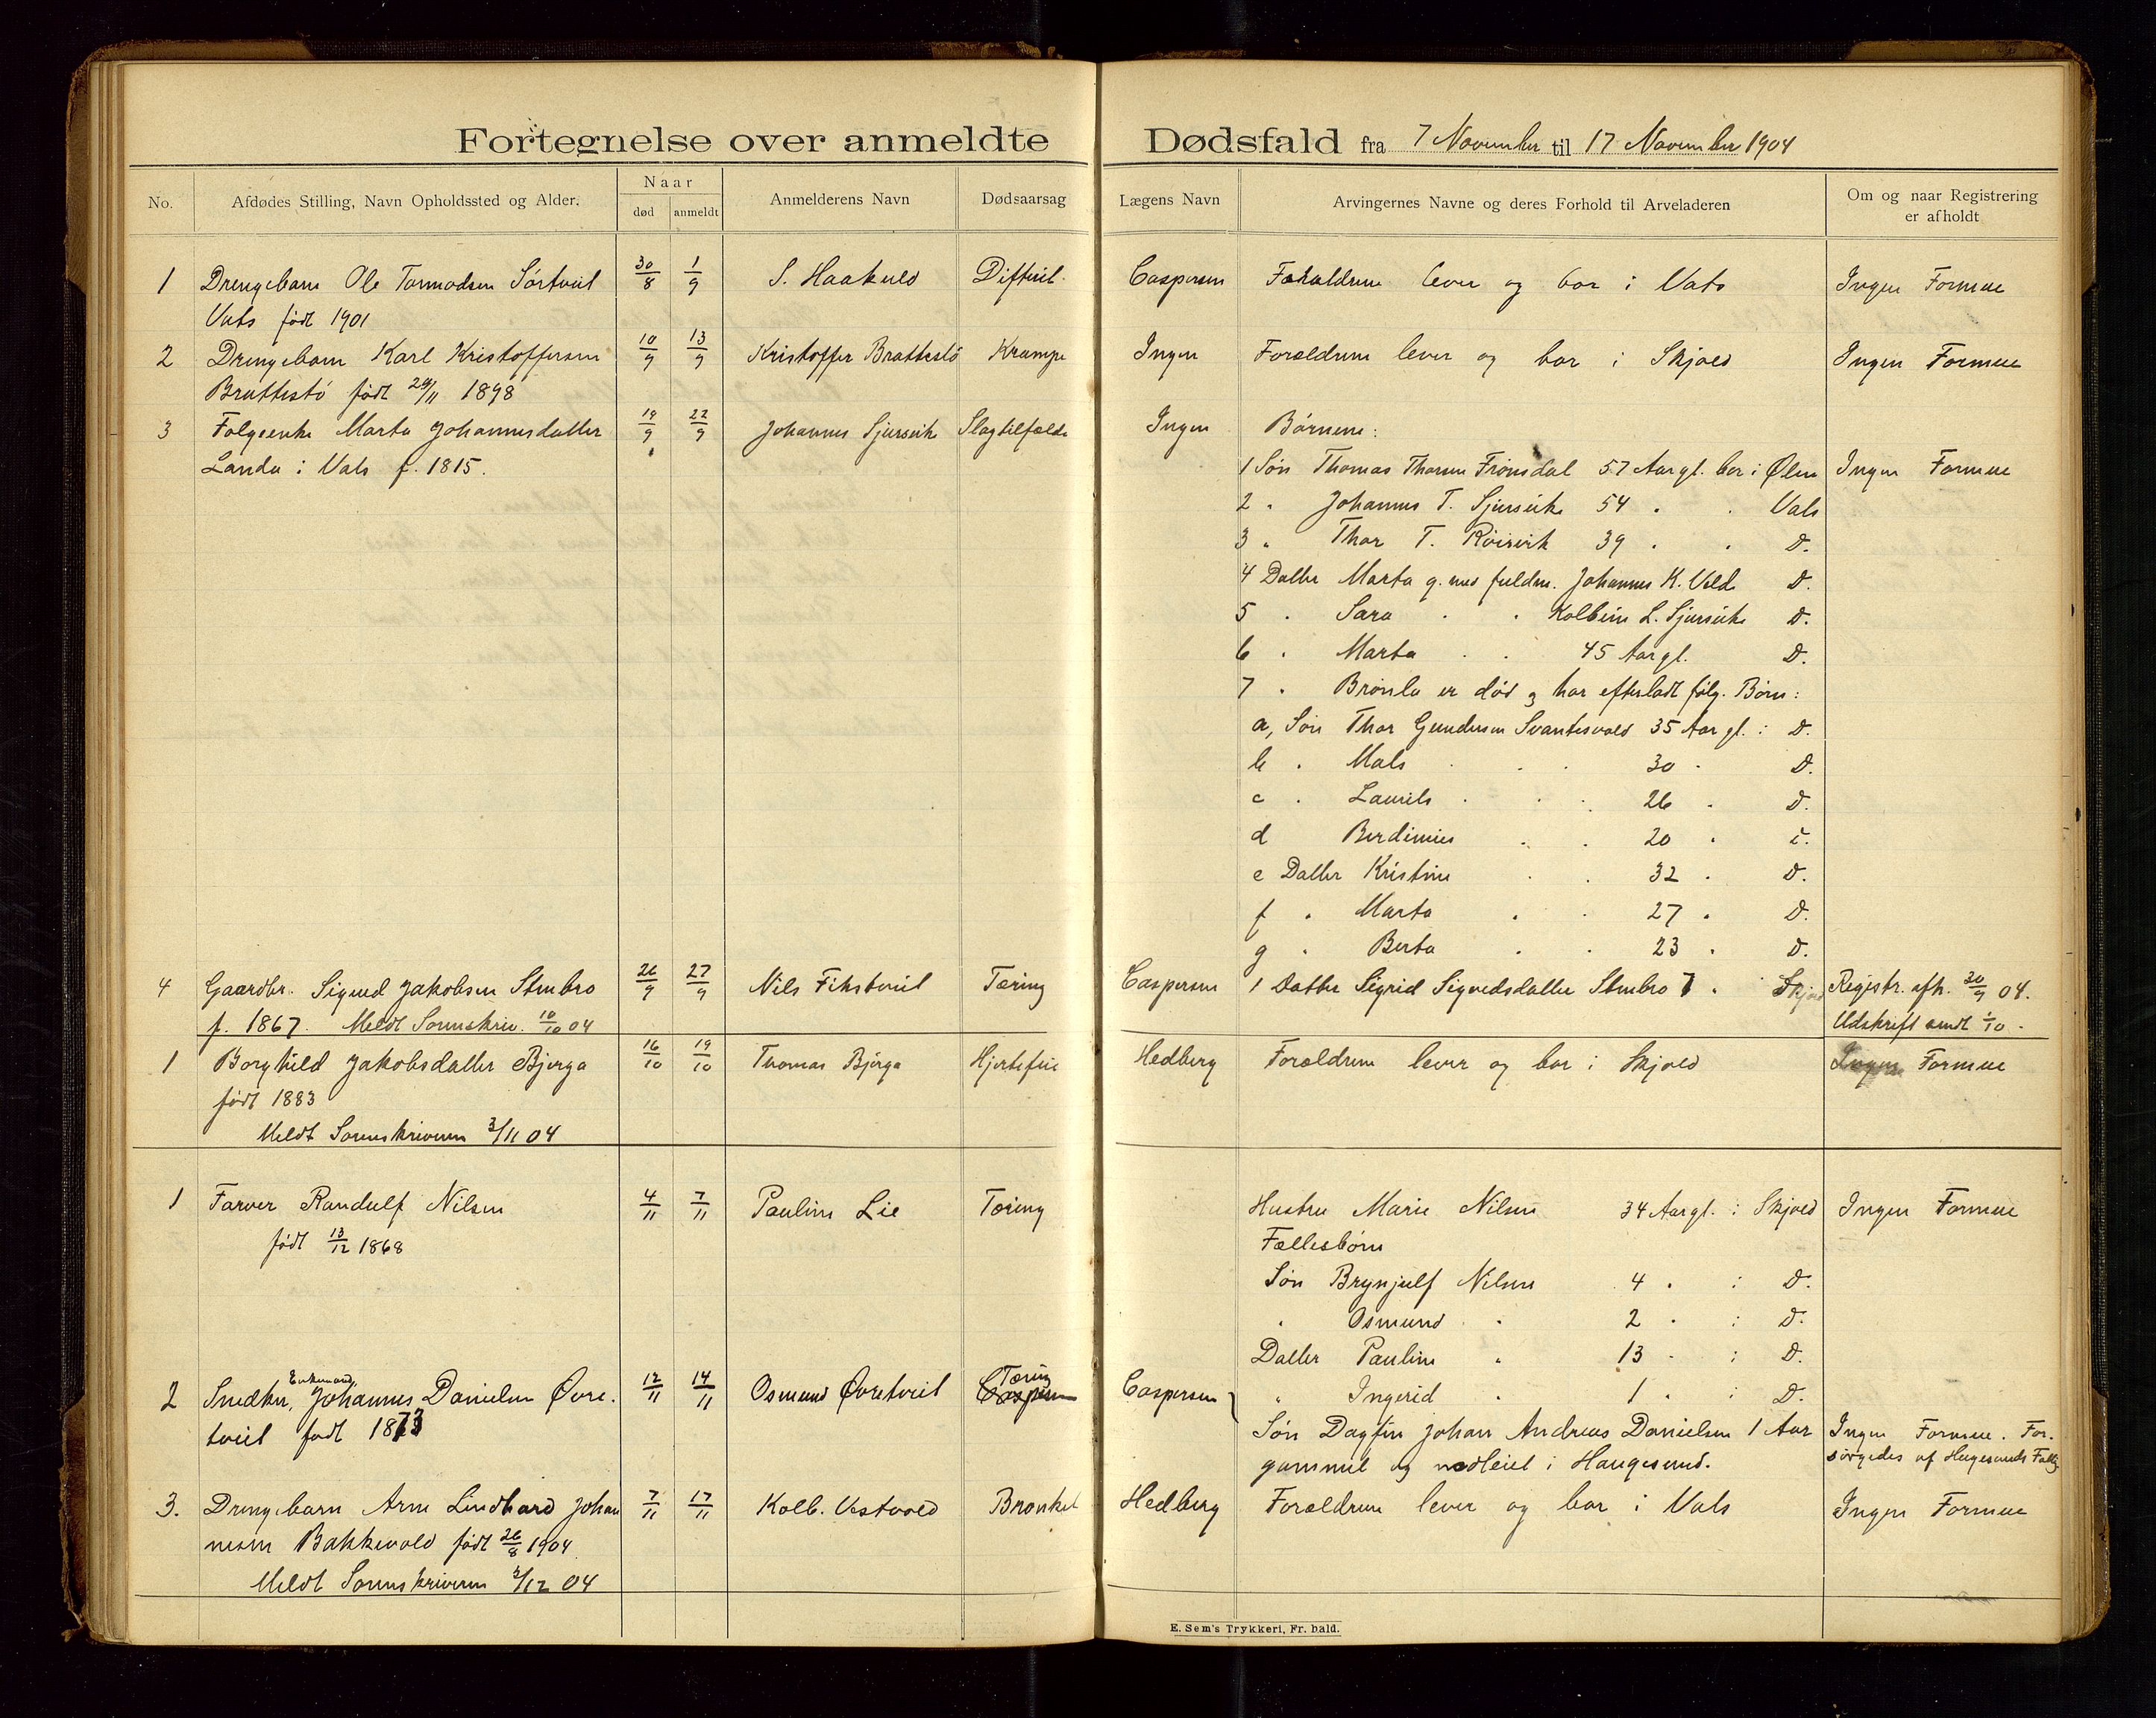 Fortegnelse over anmeldte Dødsfald fra 7 November til 17 November 1904
No. Afdødes Stilling, Navn Opholdssted og Alder. Naar død anmeldt Anmelderens Navn Dødsaarsag Lægens Navn Arvingernes Navne og deres Forhold til Arveladeren Om og naar Registrering er afholdt
1 Drengebarn Ole Tormodsen Sörtveit 30/8 1/9 S. Haakuld Difterit. Caspersen Forældrene lever og bor i Vats Ingen Formue
Vats født 1901
2 Drengebarn Karl Kristoffersen 10/9 13/9 Kristoffer Brattestö Krampe Ingen Forældrene lever og bor i Skjold Ingen Formue
Brattestö født 24/11 1898
3 Folgeenke Marta Johannesdatter 19/9 22/9 Johannes Sjurseike Slagtilfælde Ingen Börnene:
Landa i Vats f. 1815.
1 Sön Thomas Thorsen Frönsdal 57 Aar gl. bor i Ølen Ingen Formue
2 " Johannes T. Sjurseike 54 " " Vats
3 " Thor T. Röisvik 39 " " D.
4 Datter Marta g. med fuldm. Johannes K. Velde D.
5 " Sara " " Kolbein L. Sjurseike D.
6 " Marta " " 45 Aar gl. D.
7 " Brönla er död og har efterladt følg. Börn:
a, Sön Thor Gundersen Svantesvold 35 Aar gl. i D.
b " Mats " " " 30 " D.
c " Laurits " " " 26 " D.
d Berdinius " " 20 " i.
e Datter Kristine " " 32 " D.
f " Marta " " 27 " D.
g " Berta " " 23 " D.
4 Gaardbr. Sigved Jakobsen Stenbro 26/9 27/9 Nils Fikstveit Tæring Caspersen 1 Datter Sigrid Sigvedsdatter Stenbro 7 " Skjold Registr. afh. 30/9 04.
f. 1867. Meldt Sorenskriv. 10/10 04 Udskrift sendt 1/10.
1 Borghild Jakobsdatter Bjerga 16/10 19/10 Thomas Bjerga Hjertefeil Hedberg Forældrene lever og bor i Skjold Ingen Formue
født 1883
Meldt Sorenskriveren 3/11 04
1 Farver Randulf Nilsen 4/11 7/11 Pauline Lie Tæring Hustru Marie Nilsen 34 Aar gl. i Skjold Ingen Formue
født 13/12 1868 Fællesbörn
Sön Brynjulf Nilsen 4 " i D.
" Osmund " 2 " i D.
Datter Pauline " 13 " i D.
" Ingerid " 1 " i D.
2 Snedker, Enkemand, Johannes Danielsen Øvre- 12/11 14/11 Osmund Øvretveit Tæring Caspersen
tveit født 1873
Sön Dagfin Johan Andreas Danielsen 1 Aar Ingen Formue. For-
gammel og i Haugesund. sörgedes af Haugesunds
3. Drengebarn Arne Lindhard Johan 7/11 17/11 Kolb. Vestvold Bronkit Hedberg Forældrene lever og bor i Vats Ingen Formue
nesen Bakkevold født 26/8 1904
Meldt Sorenskriveren 2/12 04
E. Sem's Trykkeri, Fr. hald.